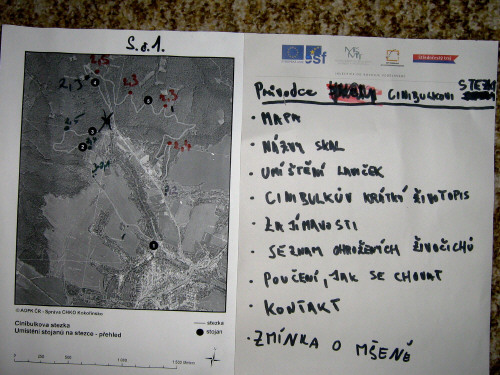 S.č.1.
2,5
2,3
2,3
2,3
© AOPK ČR - Správa CHKO Kokořínsko
Cinibulkova stezka
Umístění stojanů na stezce - přehled
stezka
stojan
0 250 500 1 000 1 500 Metres
esf
MŠMT
Průvodce CINIBULKOVI STEZK
• MAPA
• NÁZVY SKAL
• UMÍSTĚNÍ LAVČEK
• CINIBULKŮV KRÁTKÍ ŽIVOTOPIS
• ZAJÍMAVOSTI
• SEZNAM OHROŽENÍCH ŽIVOČICHŮ
• POUČENÍ, JAK SE CHOVAT
• KONTAKT
• ZMÍNKA O MŠENĚ